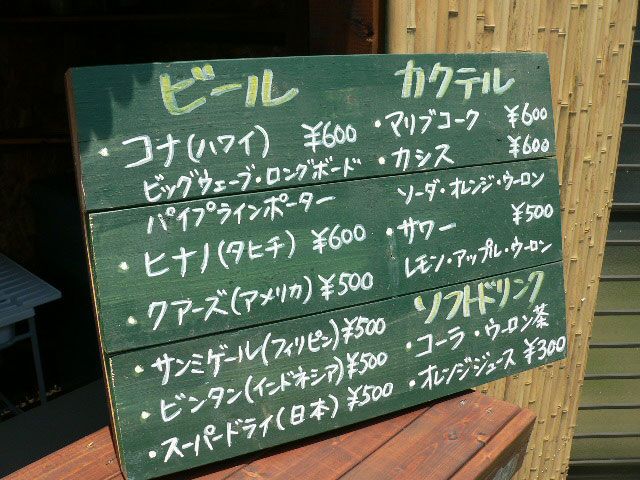 ビール
・コナ(ハワイ) ¥600
ビッグウェーブ・ロングボード
パイプラインポーター
・ヒナノ(タヒチ) ¥600
・クアーズ(アメリカ) ¥500
・サンミゲール(フィリピン) ¥500
・ビンタン(インドネシア) ¥500
・スーパードライ(日本) ¥500
カクテル
・マリブコーク ¥600
・カシス ¥600
ソーダ・オレンジ・ウーロン
・サワー ¥500
レモン・アップル・ウーロン
ソフトドリンク
・コーラ・ウーロン茶
・オレンジジュース ¥300